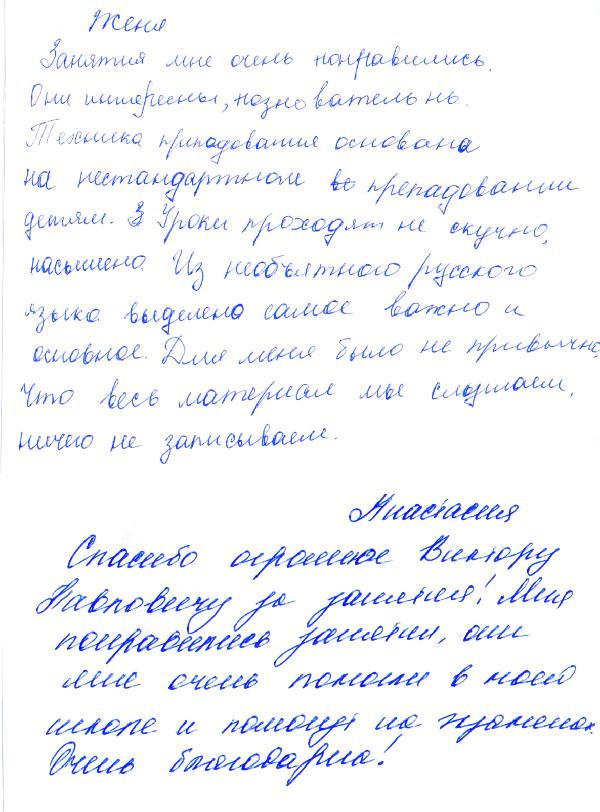 Женя
Занятия мне очень понравились.
Они интересны, познователь нь.
Техника преподования основана
на нестандартном во преподовании
детям. З Уроки проходят не скучно,
насышено. Из необъятного русского
языка выделено самое важно и
основное. Для меня было не привычно,
Что весь материал мы слушаем,
ничего не записываем.
Анастасия
Спасибо огромное Виктору
Павловичу за занятия! Мня
понравились занятия, они
мне очень помогли в моей
школе и помогут на экзаменах.
Очень благодарна!